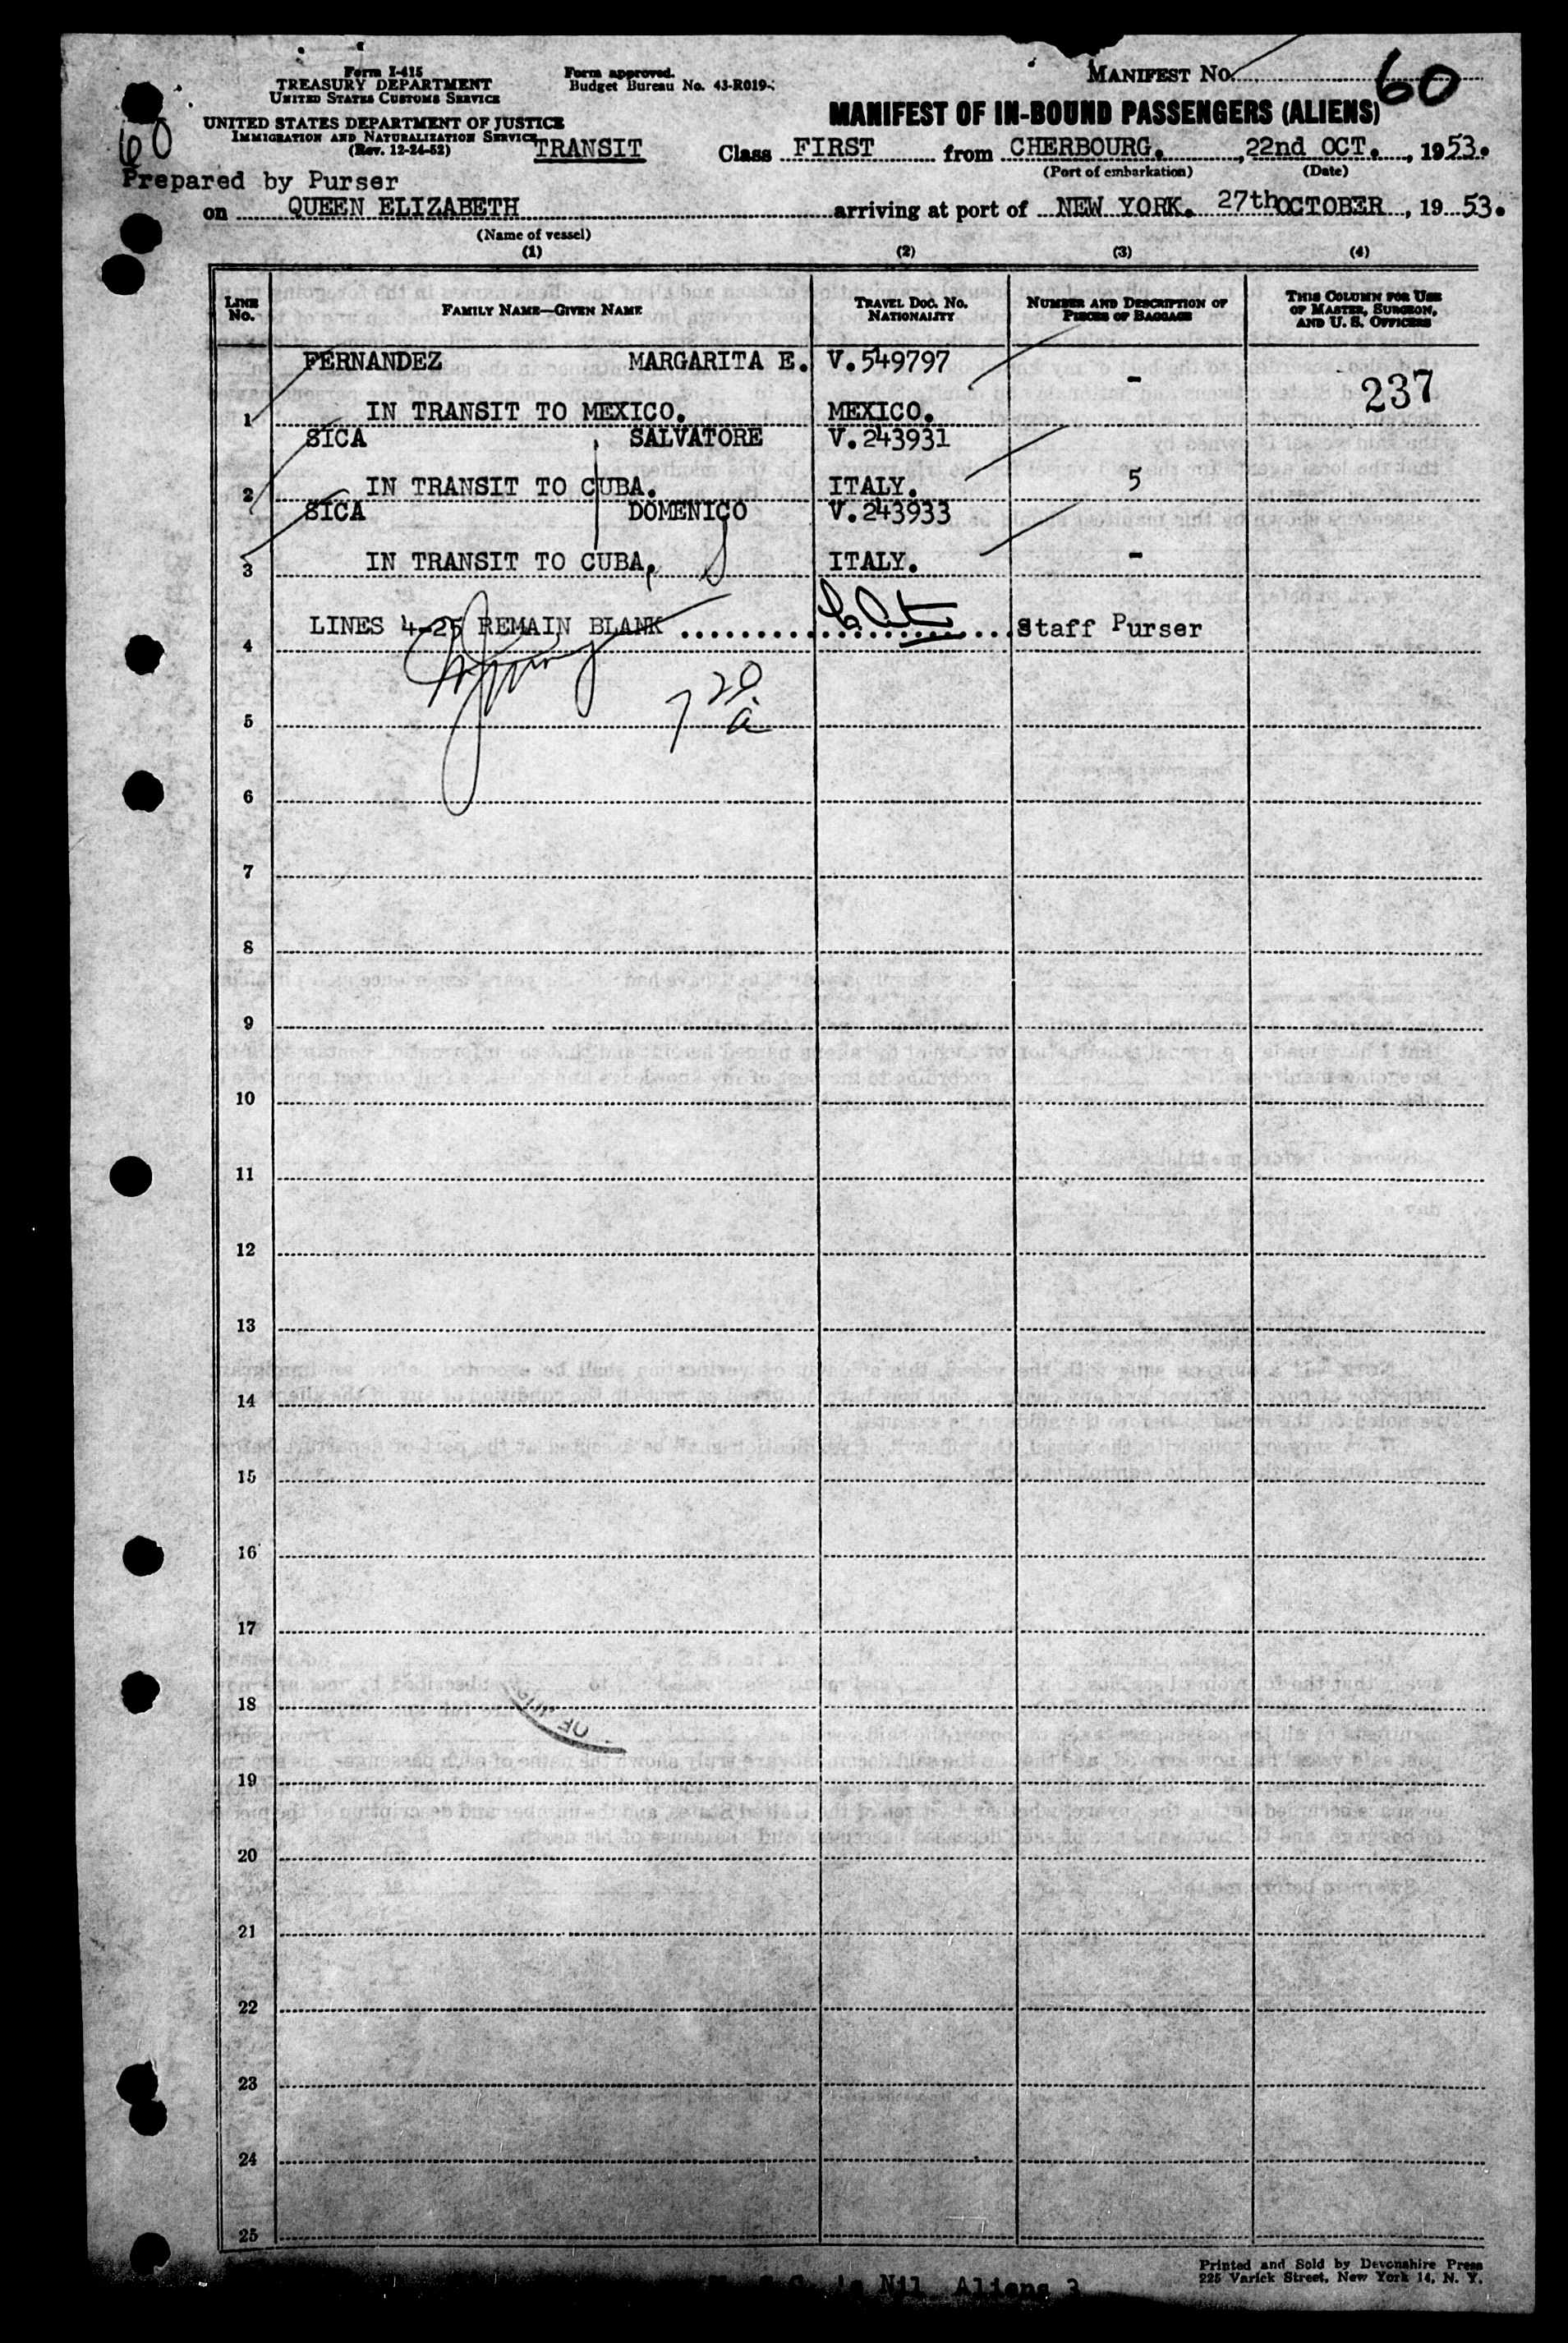 Form I-415
TREASURY DEPARTMENT
UNITED STATES CUSTOMS SERVICE
UNITED STATES DEPARTMENT OF JUSTICE
IMMIGRATION AND NATURALIZATION SERVICE
(Rev. 12-24-52)
Form approved.
Budget Bureau No. 43-R019-
MANIFEST No. 60
60
MANIFEST OF IN-BOUND PASSENGERS (ALIENS)
TRANSIT Class FIRST from CHERBOURG. , 22nd OCT. , 1953.
(Port of embarkation) (Date)
Prepared by Purser
on QUEEN ELIZABETH arriving at port of NEW YORK. 27th OCTOBER , 19 53.
(Name of vessel)
(1) (2) (3) (4)
LINE No. FAMILY NAME—GIVEN NAME TRAVEL DOC. NO. NATIONALITY NUMBER AND DESCRIPTION OF PIECES OF BAGGAGE THIS COLUMN FOR USE OF MASTER, SURGEON, AND U. S. OFFICERS
FERNANDEZ MARGARITA E. V.549797 - 237
1 IN TRANSIT TO MEXICO. MEXICO.
SICA SALVATORE V.243931
2 IN TRANSIT TO CUBA. ITALY. 5
SICA DOMENICO V.243933
3 IN TRANSIT TO CUBA. ITALY. -
4 LINES 4-25 REMAIN BLANK .......................... Staff Purser
7 20 a
5
6
7
8
9
10
11
12
13
14
15
16
17
18
OF
19
20
21
22
23
24
25
Printed and Sold by Devonshire Press
225 Varick Street, New York 14, N. Y.
Nil Aliens 3